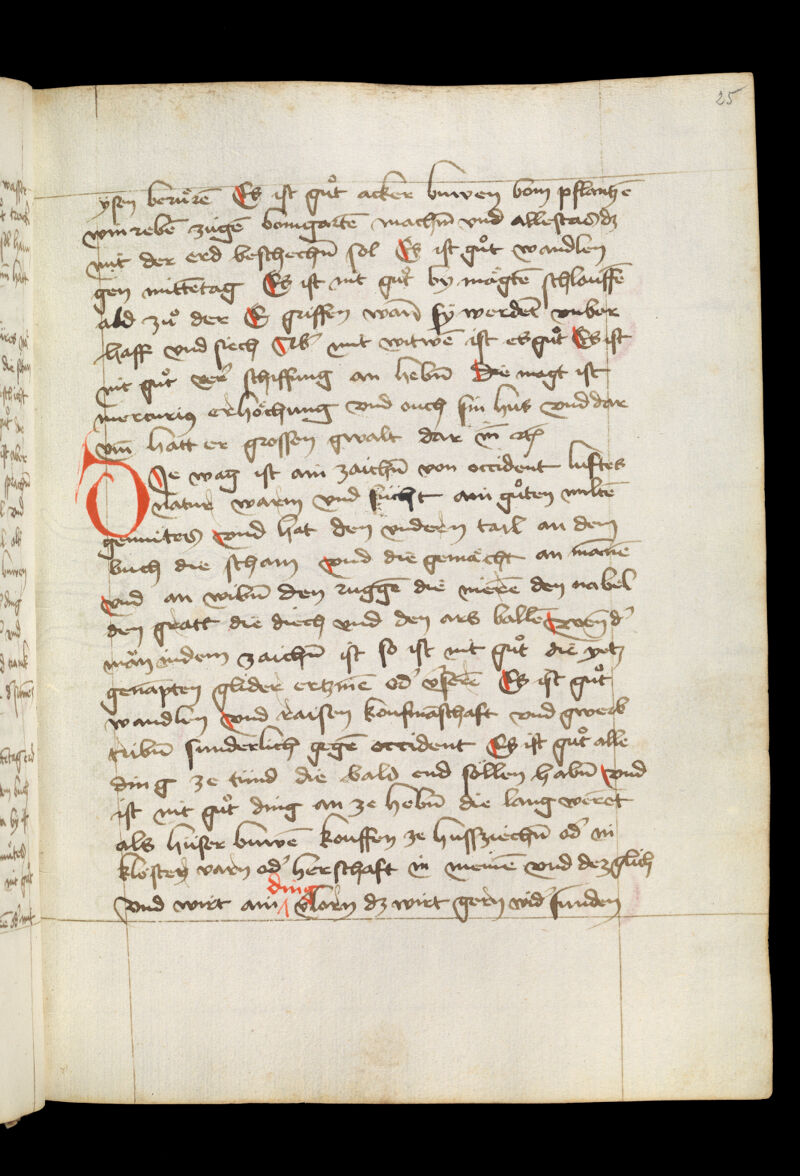 25
ysen berůrē Es ist gůt acker buwen bom pflantzē
winrebē zúgē bomgartē machn̄ vnd alles das dz
mit der erd beschechn̄ sol Es ist gůt wandlen
gen mittētag Es ist nit gůt by mägtē schlauffē
ald zů der E griffen wan̄ sy werdēt vnber
hafft vnd siech Ab' mit witwē ist es gůt Es ist
nit gůt ver' schiffung an hebn̄ Die magt ist
mercurius erhöchung vnd ouch sin hus vnd dar
vm̄ hatt er grossen gwalt dar in̄ etc
Die wag ist ain zaichn̄ von occident luftes
natur warm vnd fúcht ain gůten miltē
gemútes vnd hat den vndern tail an dem
buch die scham vnd die gemächt an mannē
vnd an wibn̄ den ruggē die nierē den nabel
den gratt die diech vnd den ars balle wen̄ d'
män in dem zaichn̄ ist so ist nit gůt die yetz
genāpten glider ertznē od' v'serē Es ist gůt
wandlen vnd raisen koufmāschaft vnd gwerb
tribn̄ sunderlich gegē occident Es ist gůt alle
ding ze tůnd die bald end söllen habn̄ vnd
ist nit gůt ding an ze hebn̄ die lang werēt
als húser buwē kouffen ze hussziechn̄ od' in
klöster varn od' herschaft in nemē vnd dez glich
vnd wirt ain ding v'lorn dz wirt gern wid' funden